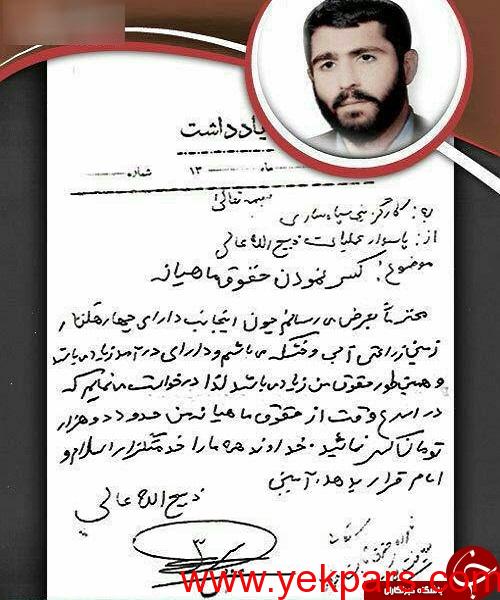 یادداشت
شماره ماه ۱۳
بسمه تعالی
به: کارگزینی سپاه ساری
از: پاسدار عملیات ذبیح الله عالی
موضوع: کسر نمودن حقوق ماهیانه
محترماً بعرض می رسانم چون اینجانب دارای چهار هکتار
زمین زراعتی آبی و خشکه می باشم و دارای درآمد زیاد می باشد
و همینطور حقوق من زیاد می باشد لذا درخواست می نمایم که
در اسرع وقت از حقوق ماهیانه من حدود دو هزار
تومان کسر نمائید. خداوند همه ما را خدمتگزار اسلام و
امام قرار بدهد. آمین
ذبیح الله عالی
www.yekpars.com
باشگاه خبرنگاران